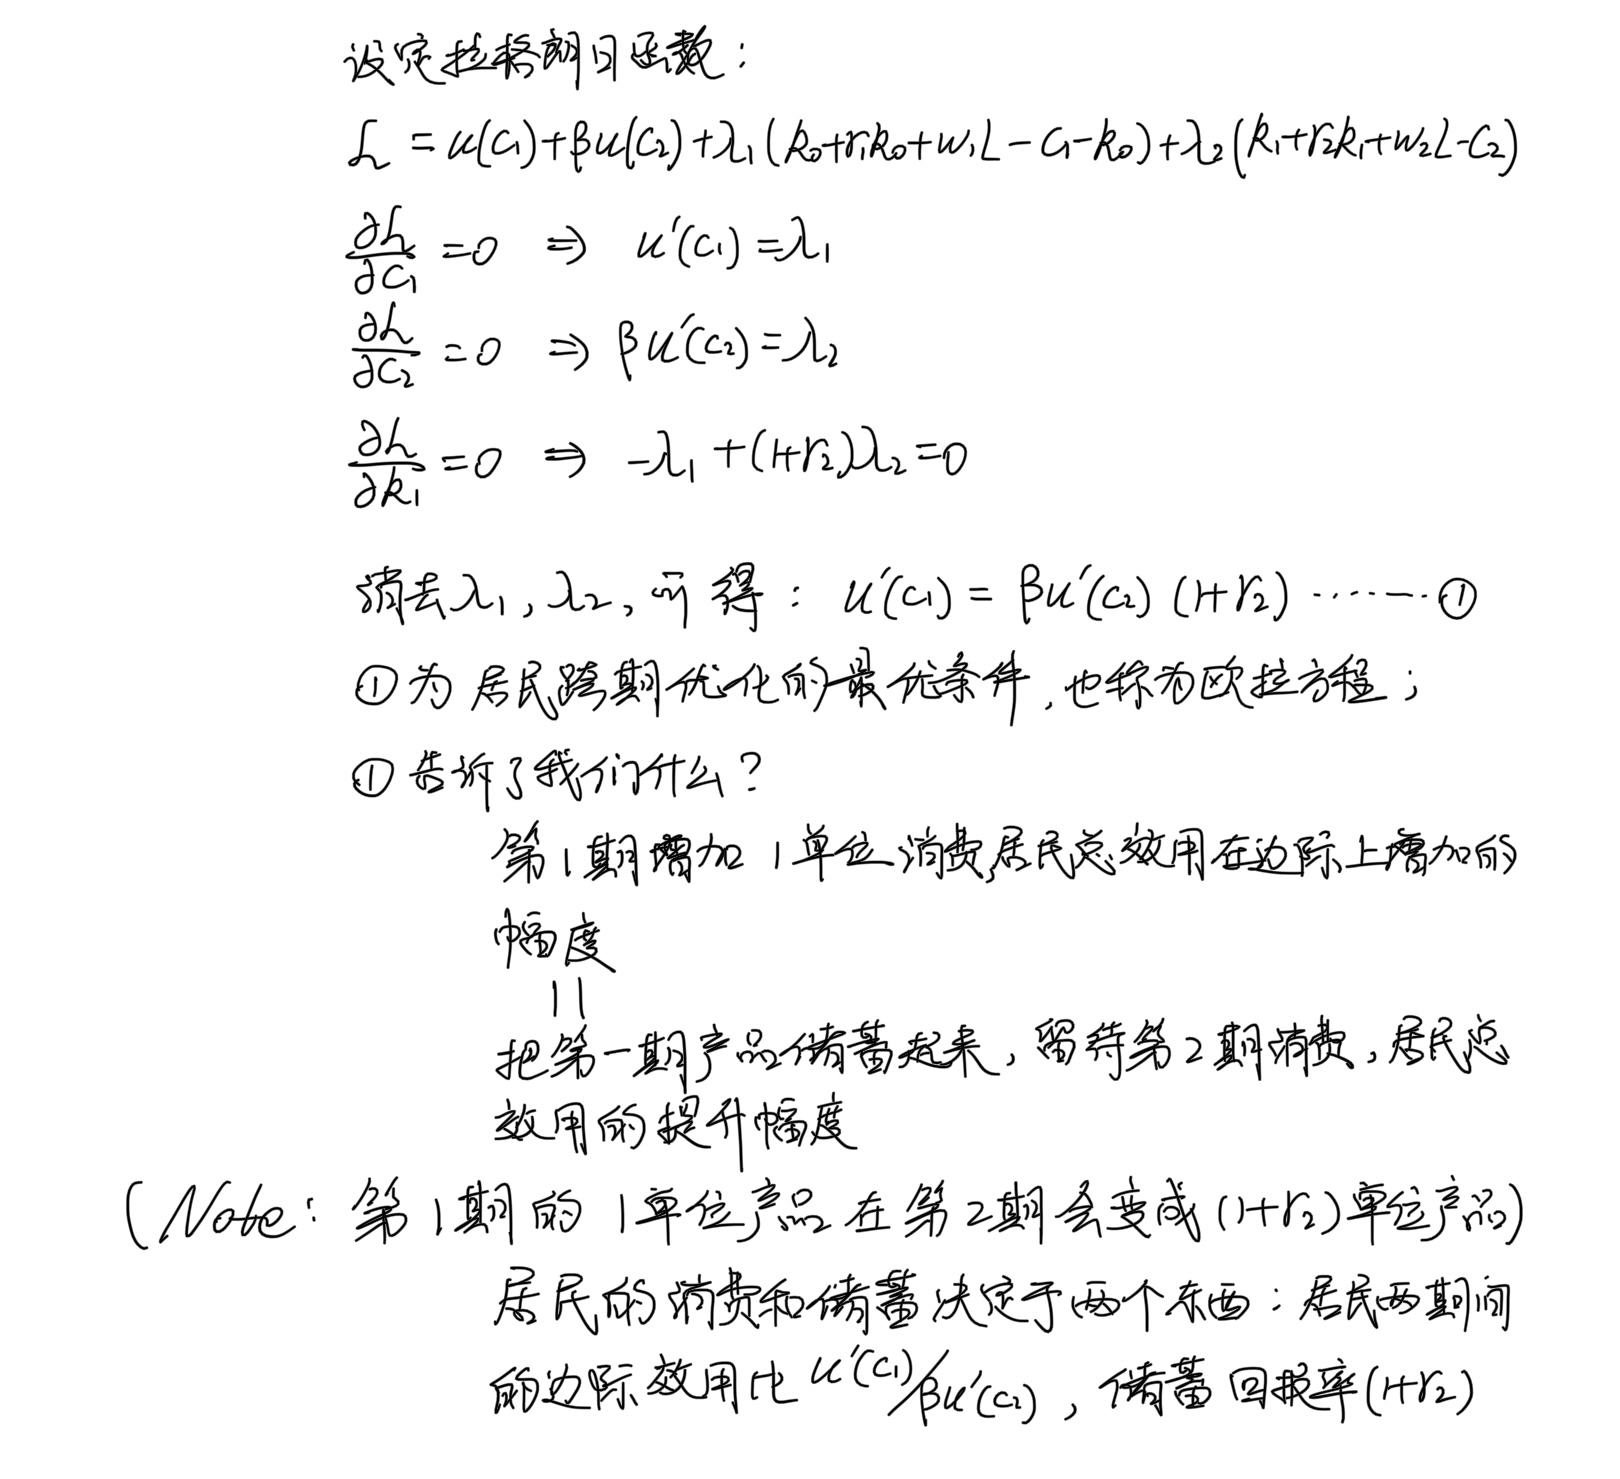 设定拉格朗日函数：
L = u(c₁)+βu(c₂)+λ₁(k₀+r₁k₀+w₁L-c₁-k₀)+λ₂(k₁+r₂k₁+w₂L-c₂)
∂L/∂c₁ =0 ⇒ u′(c₁)=λ₁
∂L/∂c₂ =0 ⇒ βu′(c₂)=λ₂
∂L/∂k₁ =0 ⇒ -λ₁+(1+r₂)λ₂=0
消去λ₁,λ₂,可得：u′(c₁) = βu′(c₂)(1+r₂)········①
①为居民跨期优化的最优条件,也称为欧拉方程；
①告诉了我们什么？
第1期增加1单位消费,居民总效用在边际上增加的
幅度
||
把第一期产品储蓄起来,留待第2期消费,居民总
效用的提升幅度
(Note: 第1期的1单位产品在第2期会变成(1+r₂)单位产品)
居民的消费和储蓄决定于两个东西：居民两期间
的边际效用比 u′(c₁)/βu′(c₂),储蓄回报率(1+r₂)